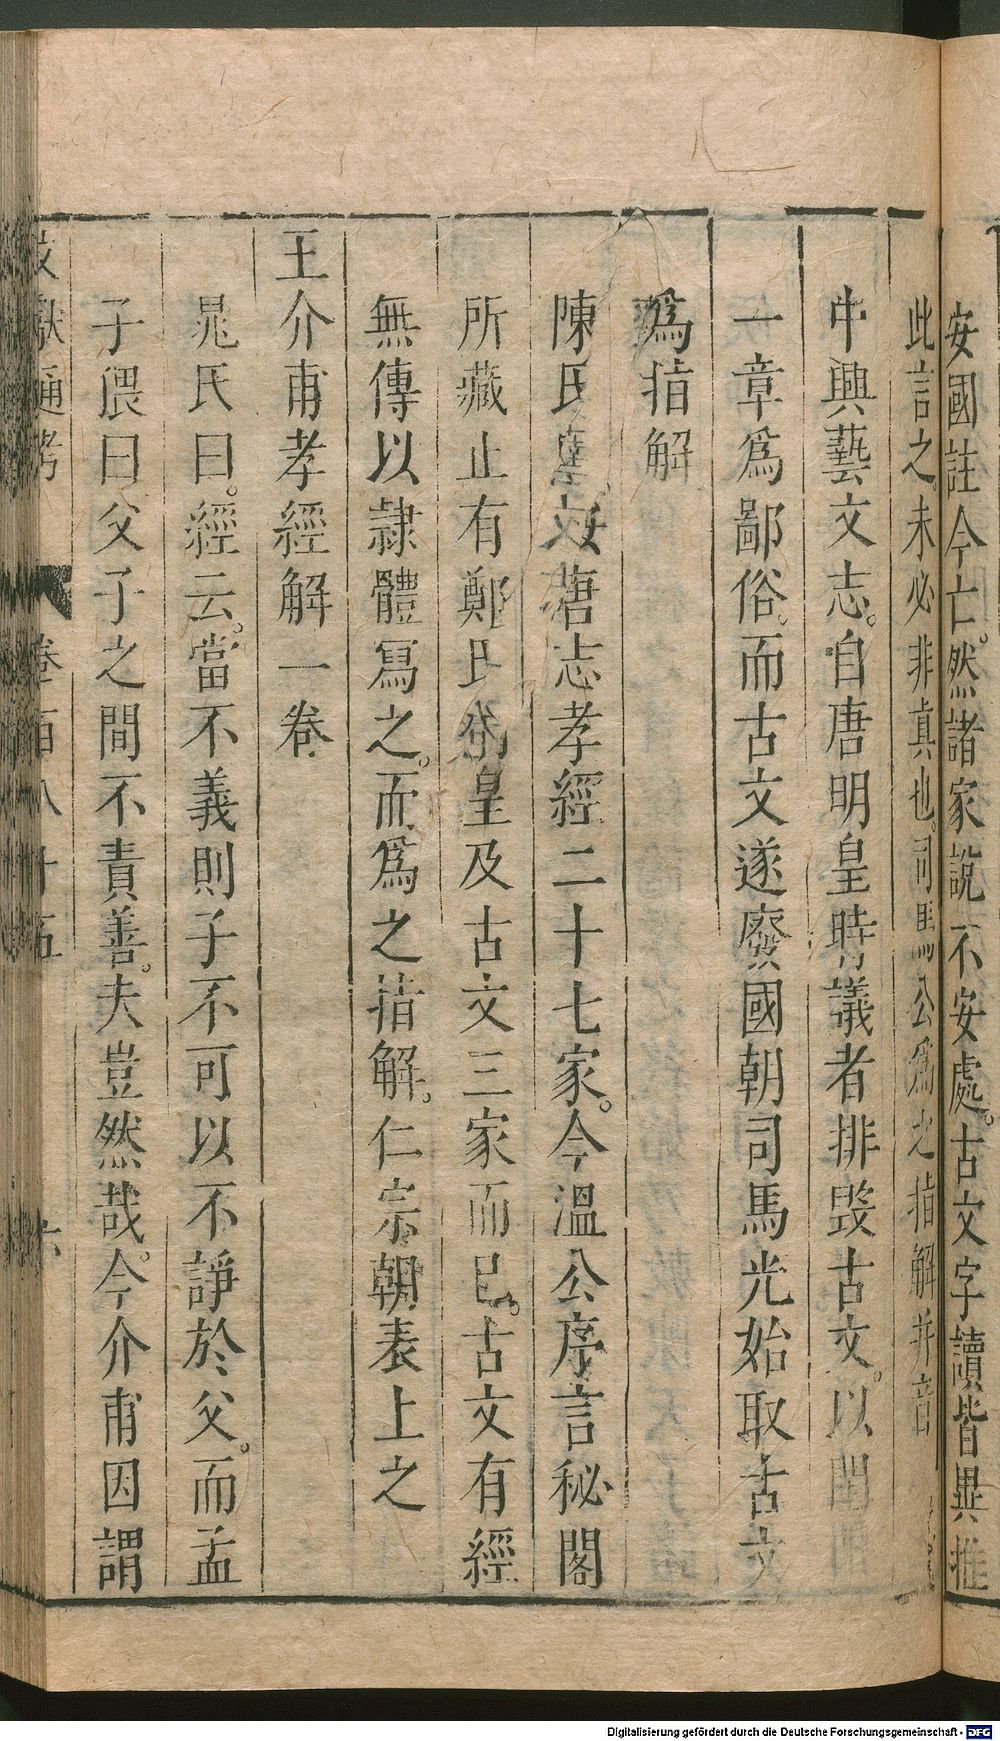 安國註今亡。然諸家說不安處。古文字讀皆異。推
此言之。未必非真也。司馬公爲之指解并音
中興藝文志。自唐明皇時議者排毀古文。以閨門
一章爲鄙俗。而古文遂廢國朝司馬光始取古文
爲指解
陳氏 唐志孝經二十七家。今溫公序言秘閣
所藏止有鄭氏 皇及古文三家而已。古文有經
無傳以隷體寫之。而爲之指解。仁宗朝表上之
王介甫孝經解一卷
晁氏曰。經云。當不義則子不可以不諍於父。而孟
子猥曰父子之間不責善。夫豈然哉。今介甫因謂
文獻通考 卷一百八十五 六
Digitalisierung gefördert durch die Deutsche Forschungsgemeinschaft - DFG